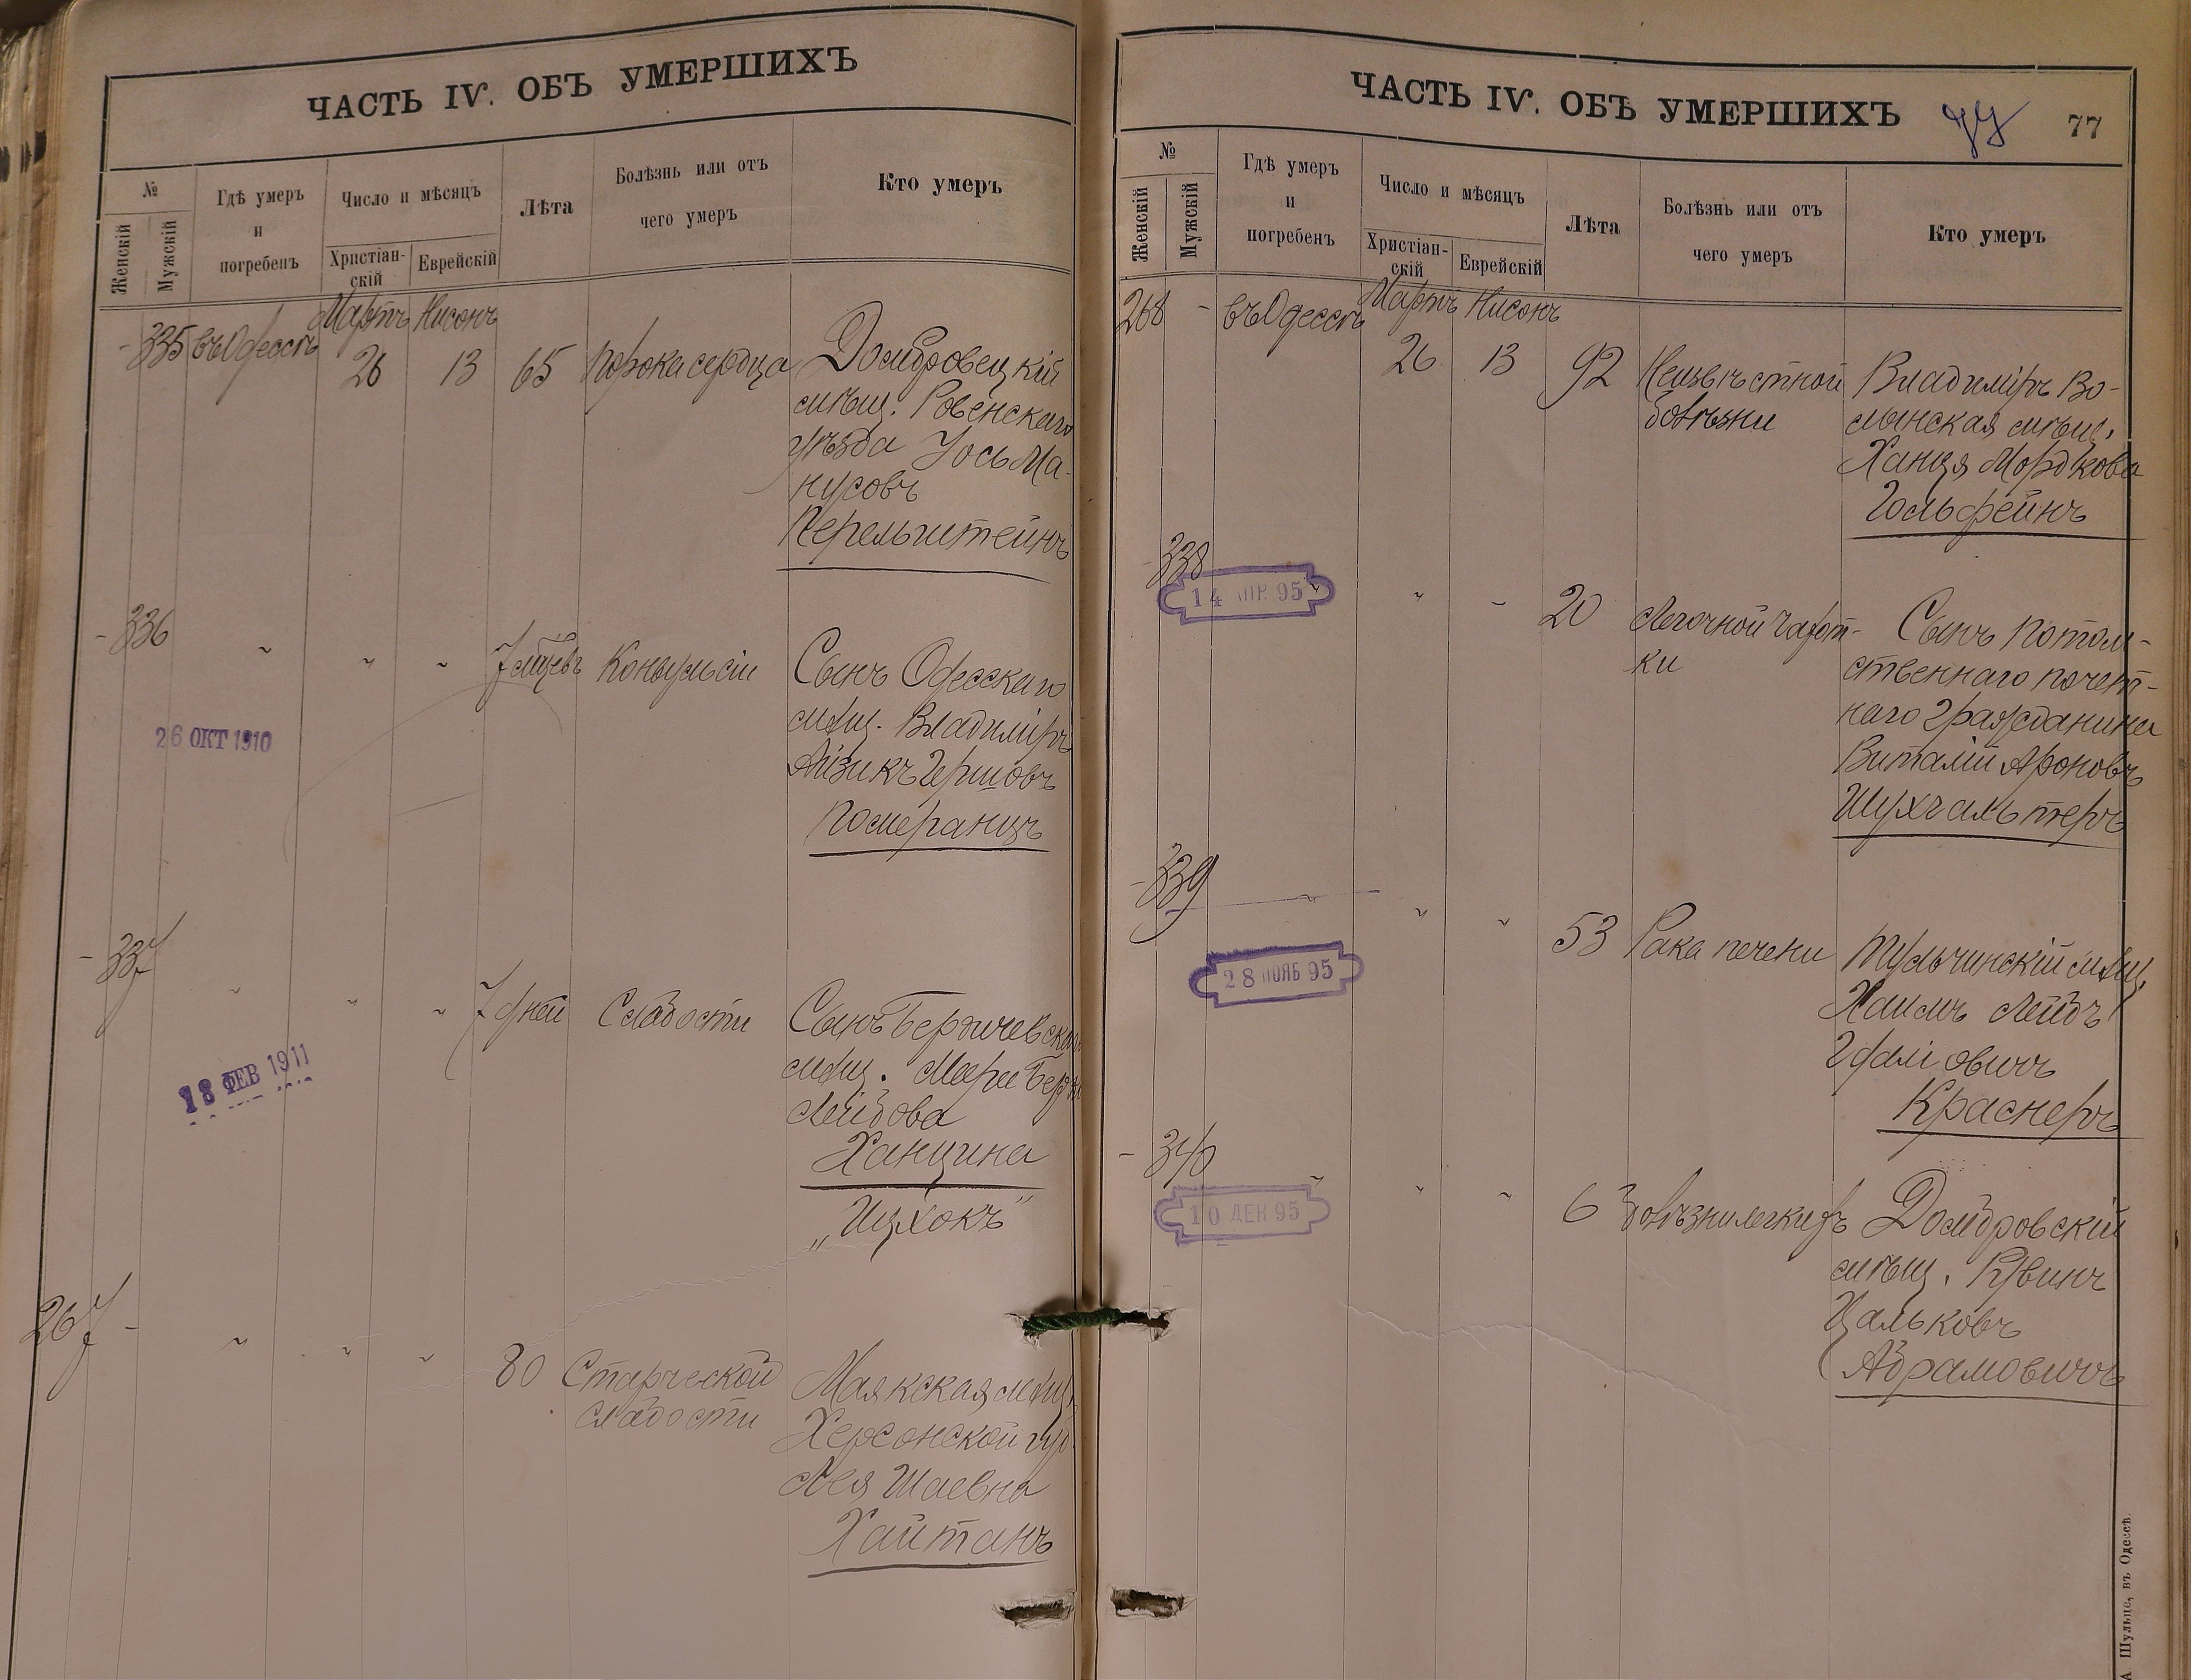 ЧАСТЬ IV. ОБЪ УМЕРШИХЪ
№
Женскій
Мужскій
Гдѣ умеръ
и
погребенъ
Число и мѣсяцъ
Христіан-
скій
Еврейскій
Лѣта
Болѣзнь или отъ
чего умеръ
Кто умеръ
Мартъ Нисонъ
- 335 въ Одессѣ 26 13 65 Порока сердца Домбровецкій
мѣщ. Ровенскаго
уѣзда Іось Ма-
нусовъ
Перельштейнъ
- 336 " " " 7 мѣсцевъ Конвульсіи Сынъ Одесскаго
мѣщ. Владиміръ
Айзикъ Гершовъ
Померанцъ
26 ОКТ 1910
- 337 " " " 7 дней Слабости Сынъ Бердичевской
мѣщ. Мари Берты
Лейбова
Ханцина
„Ицхокъ"
18 ФЕВ 1911
267 - " " " 80 Старческой
слабости
Маякская мѣщ.
Херсонской губ.
Лея Шаевна
Хайтанъ
ЧАСТЬ IV. ОБЪ УМЕРШИХЪ 77 77
№
Женскій
Мужскій
Гдѣ умеръ
и
погребенъ
Число и мѣсяцъ
Христіан-
скій
Еврейскій
Лѣта
Болѣзнь или отъ
чего умеръ
Кто умеръ
Мартъ Нисонъ
268 - въ Одессѣ 26 13 92 Неизвѣстной
болѣзни
Владиміръ Во-
лынская мѣщ.
Ханця Мордкова
Гольфейнъ
- 338 " " - 20 Легочной чахот-
ки
Сынъ потом-
ственнаго почет-
наго гражданина
Виталій Ароновъ
Шухгальтеръ
14 АПР 95
- 339 " " " 53 Рака печени Тульчинскій мѣщ.
Хаимъ Лейбъ
Красперъ
28 НОЯБ 95
- 340 " " " 6 Болѣзни легкихъ Домбровскій
мѣщ. Рувинъ
Цальковъ
Абрамовичъ
10 ДЕК 95
А Шульце, въ Одессѣ.